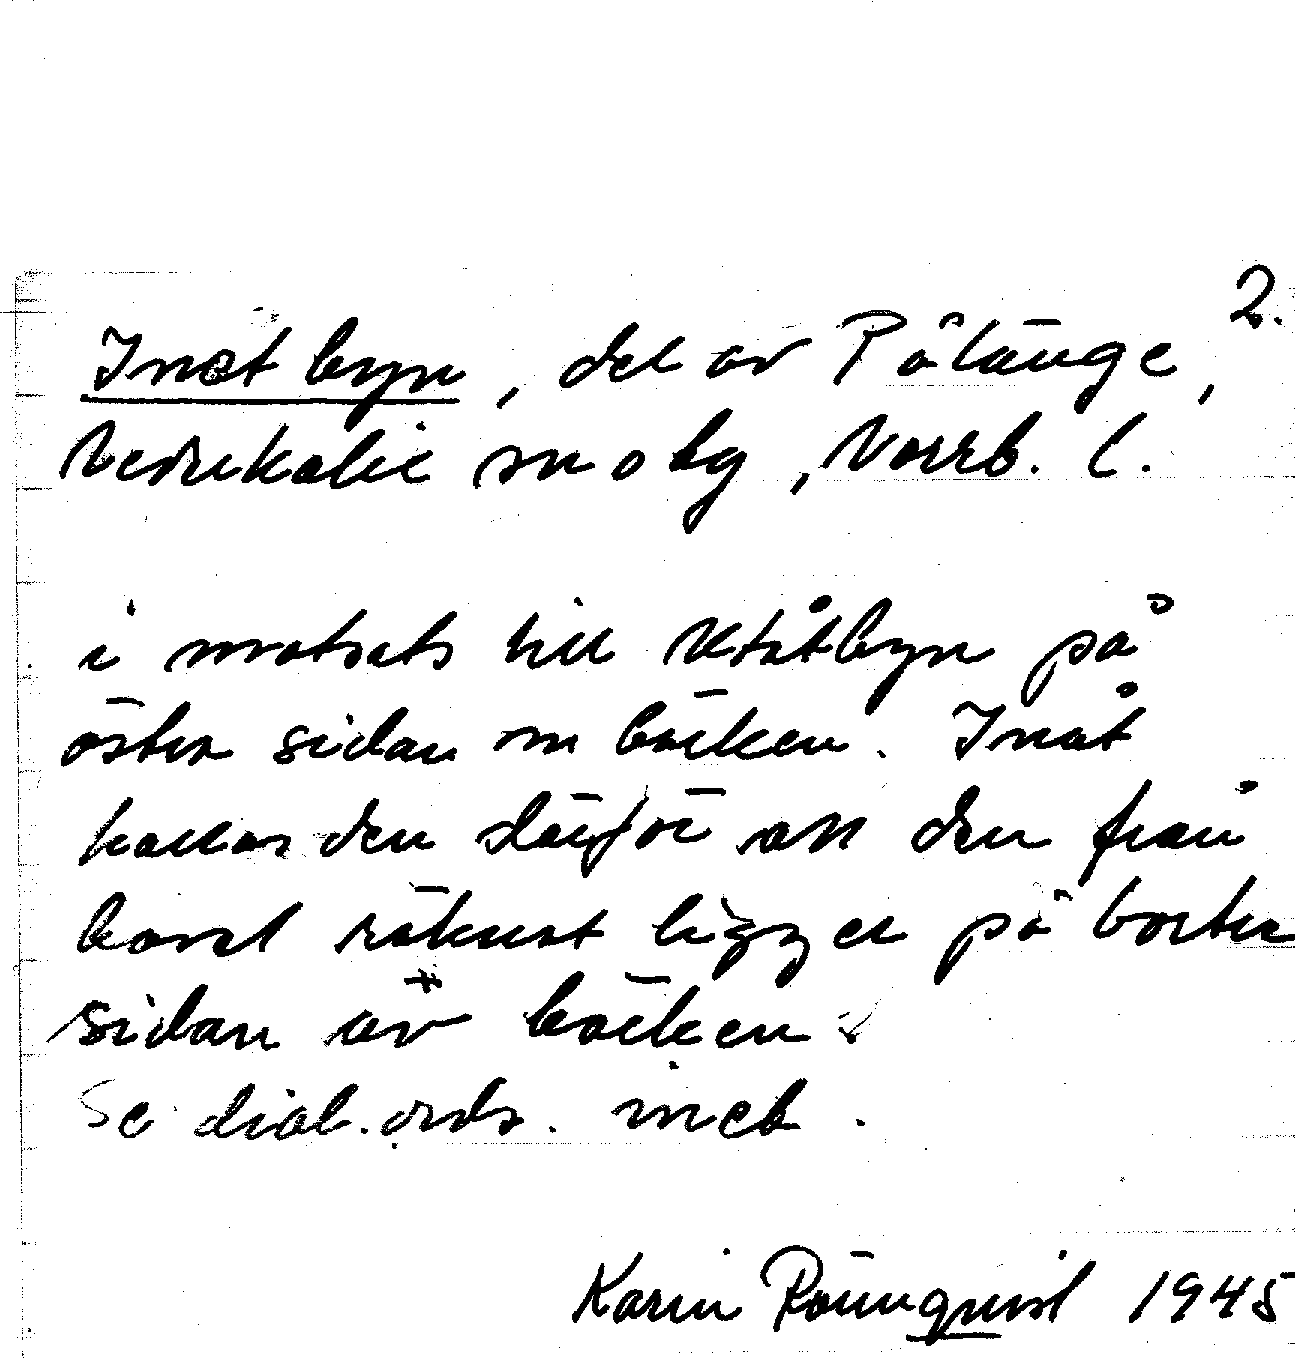 2.
Inetbyn, del av Pålänge,
Nederkalix sn o by, Norrb. l.
i motsats till Utåtbyn på
östra sidan om bäcken. Inåt
kallas den därför att den från
havet räknat ligger på bortre
sidan av bäcken.
Se dial.ords. inet.
Karin Rönnqvist 1945